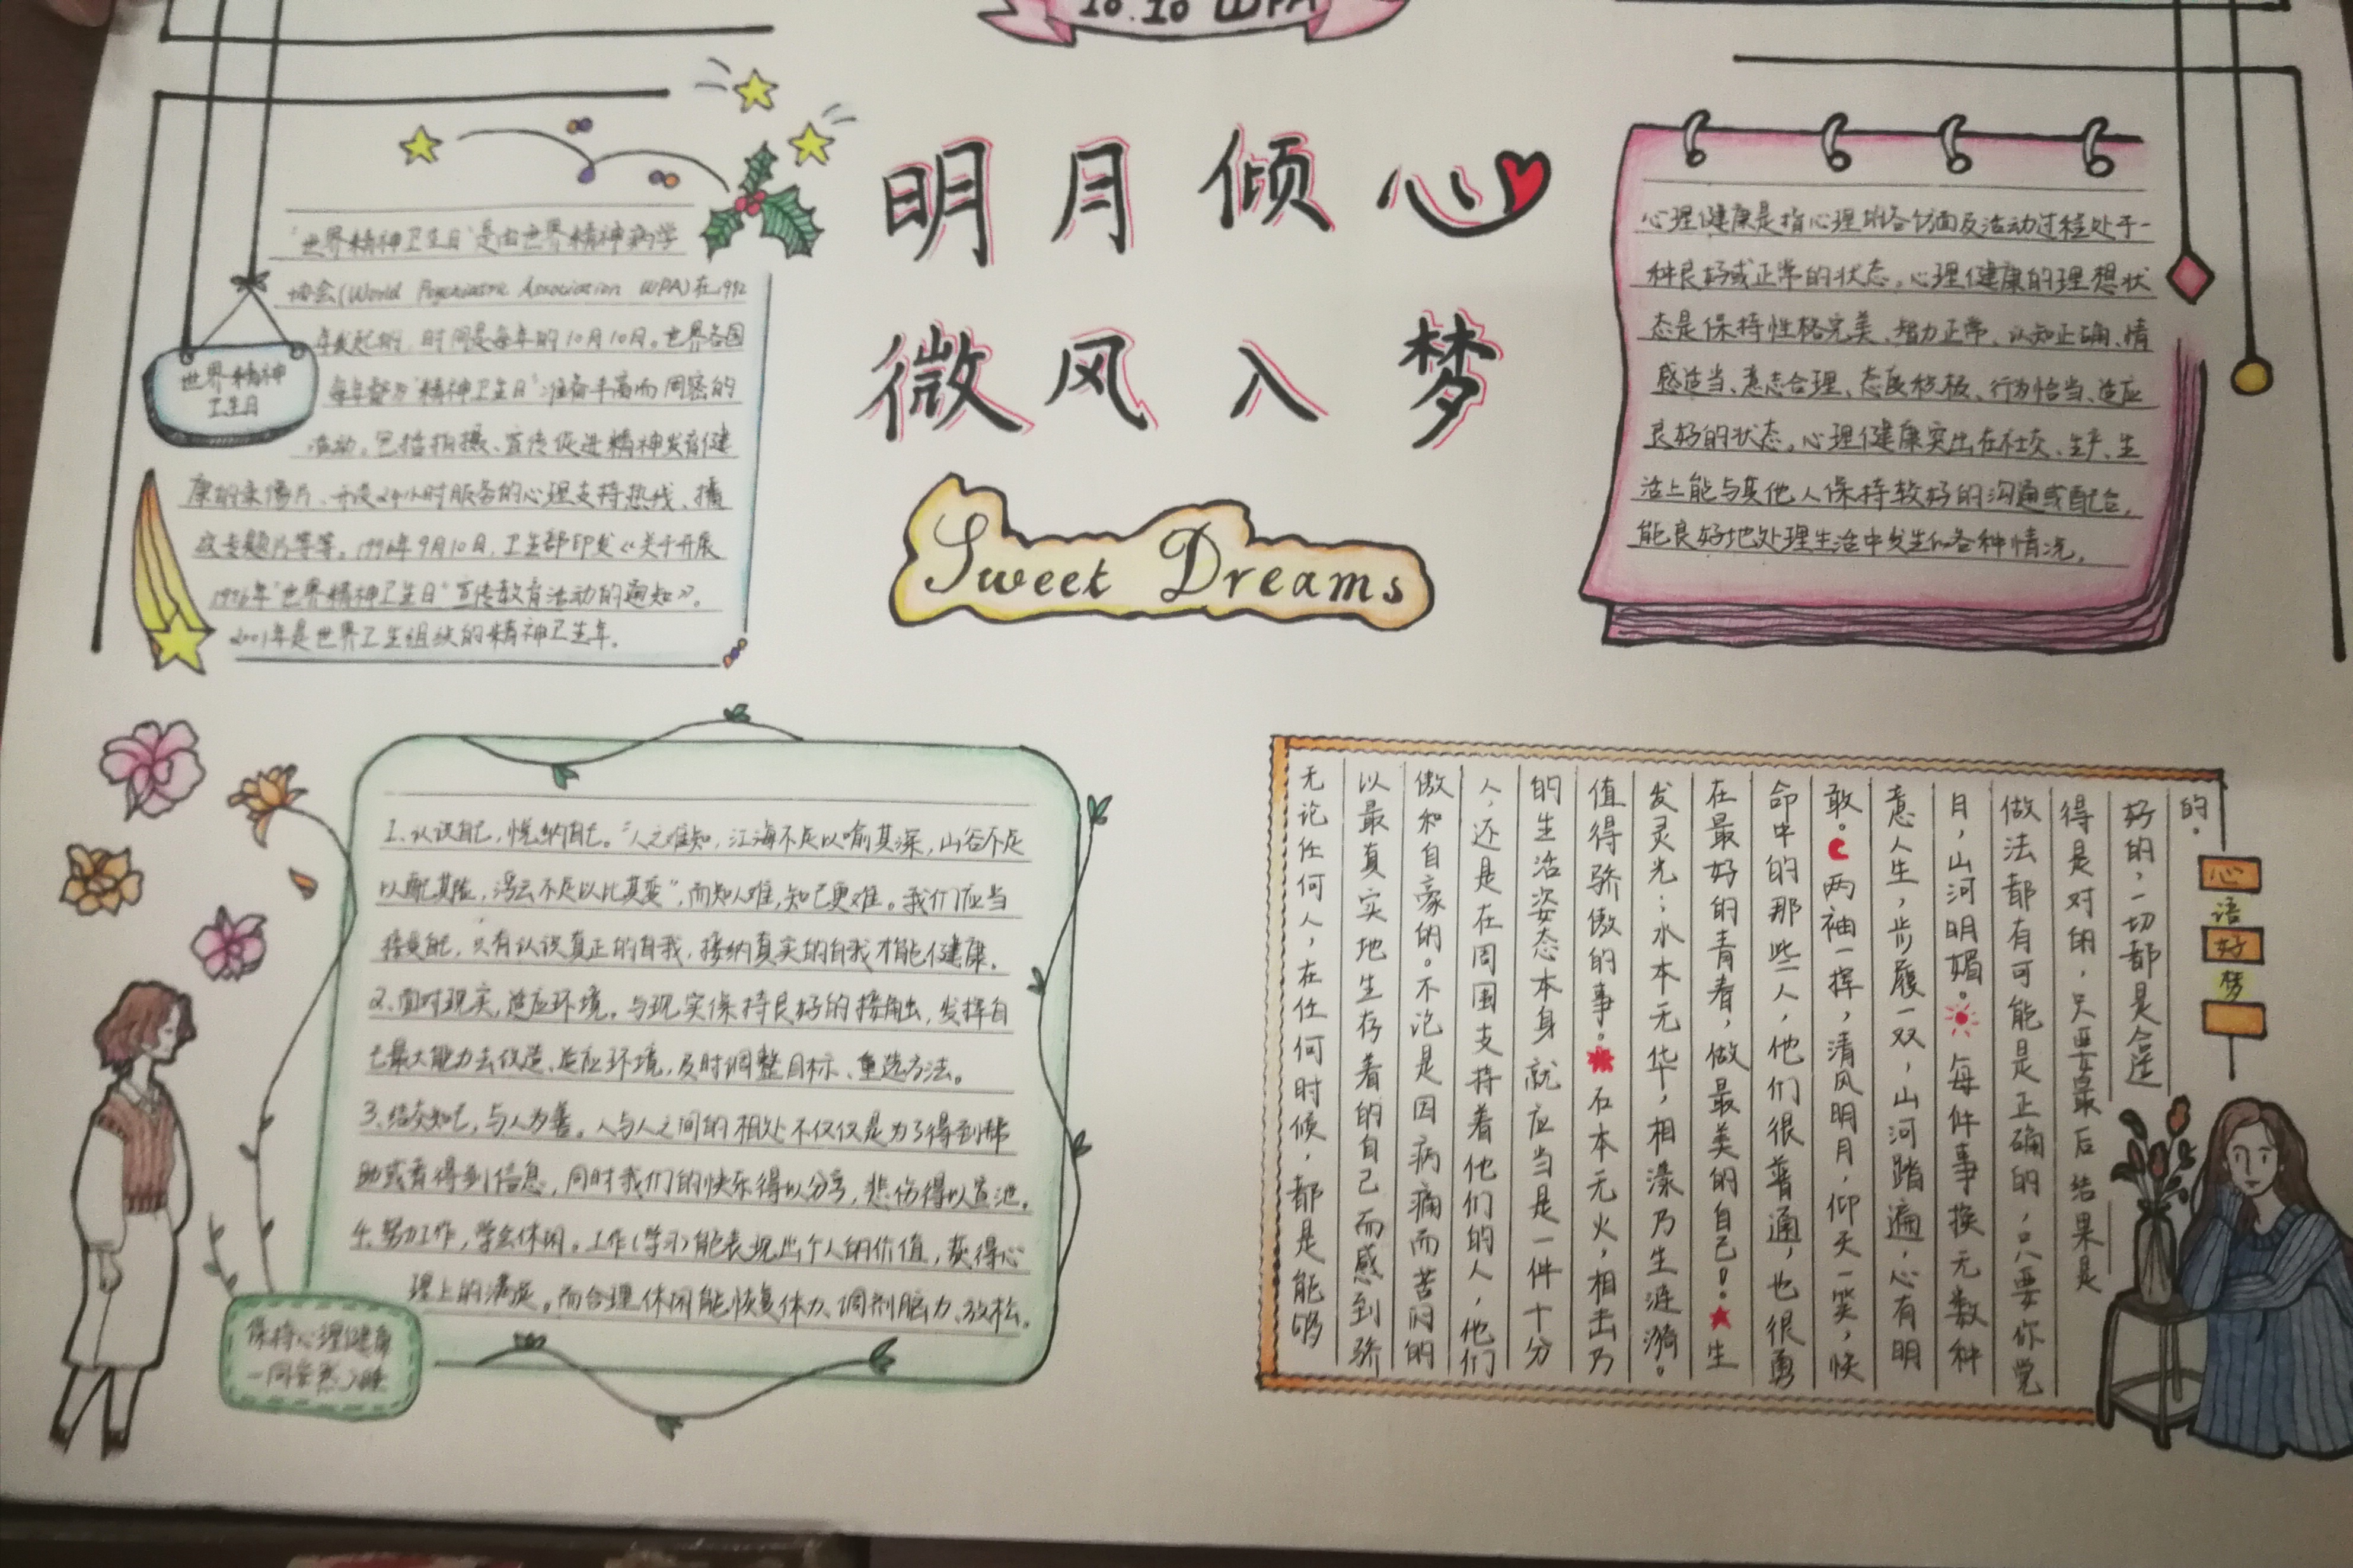 10.10 WPA
明月倾心
微风入梦
Sweet Dreams
世界精神
卫生日
"世界精神卫生日"是由世界精神病学
协会(World Psychiatric Association WPA)在1992
年发起的,时间是每年的10月10日。世界各国
每年都为"精神卫生日"准备丰富而周密的
活动。包括拍摄、宣传促进精神发育健
康的录像片、开设24小时服务的心理支持热线、播
放专题片等等。1996年9月10日,卫生部印发《关于开展
1996年"世界精神卫生日"宣传教育活动的通知》。
2001年是世界卫生组织的精神卫生年。
心理健康是指心理的各个方面及活动过程处于一
种良好或正常的状态。心理健康的理想状
态是保持性格完美、智力正常、认知正确、情
感适当、意志合理、态度积极、行为恰当、适应
良好的状态。心理健康突出在社交、生产、生
活上能与其他人保持较好的沟通或配合,
能良好地处理生活中发生的各种情况。
1.认识自己,悦纳自己。"人之难知,江海不足以喻其深,山谷不足
以配其险,浮云不足以比其变",而知人难,知己更难。我们应当
接受自己,只有认识真正的自我,接纳真实的自我才能健康。
2.面对现实,适应环境。与现实保持良好的接触,发挥自
己最大能力去改造、适应环境,及时调整目标、重选方法。
3.结交知己,与人为善。人与人之间的相处不仅仅是为了得到帮
助或者得到信息,同时我们的快乐得以分享,悲伤得以宣泄。
4.努力工作,学会休闲。工作(学习)能表现出个人的价值,获得心
理上的满足。而合理休闲能恢复体力、调剂脑力、放松。
保持心理健康
一同安然入睡
心语好梦
无论任何人,在任何时候,都是能够
以最真实地生存着的自己而感到骄
傲和自豪的。不论是因病痛而苦闷的
人,还是在周围支持着他们的人,他们
的生活姿态本身就应当是一件十分
值得骄傲的事。石本无火,相击乃
发灵光;水本无华,相漾乃生涟漪。
在最好的青春,做最美的自己!生
命中的那些人,他们很普通,也很勇
敢。两袖一挥,清风明月,仰天一笑,快
意人生,步履一双,山河踏遍,心有明
月,山河明媚。每件事换无数种
做法都有可能是正确的,只要你觉
得是对的,只要最后结果是
好的,一切都是合适
的.